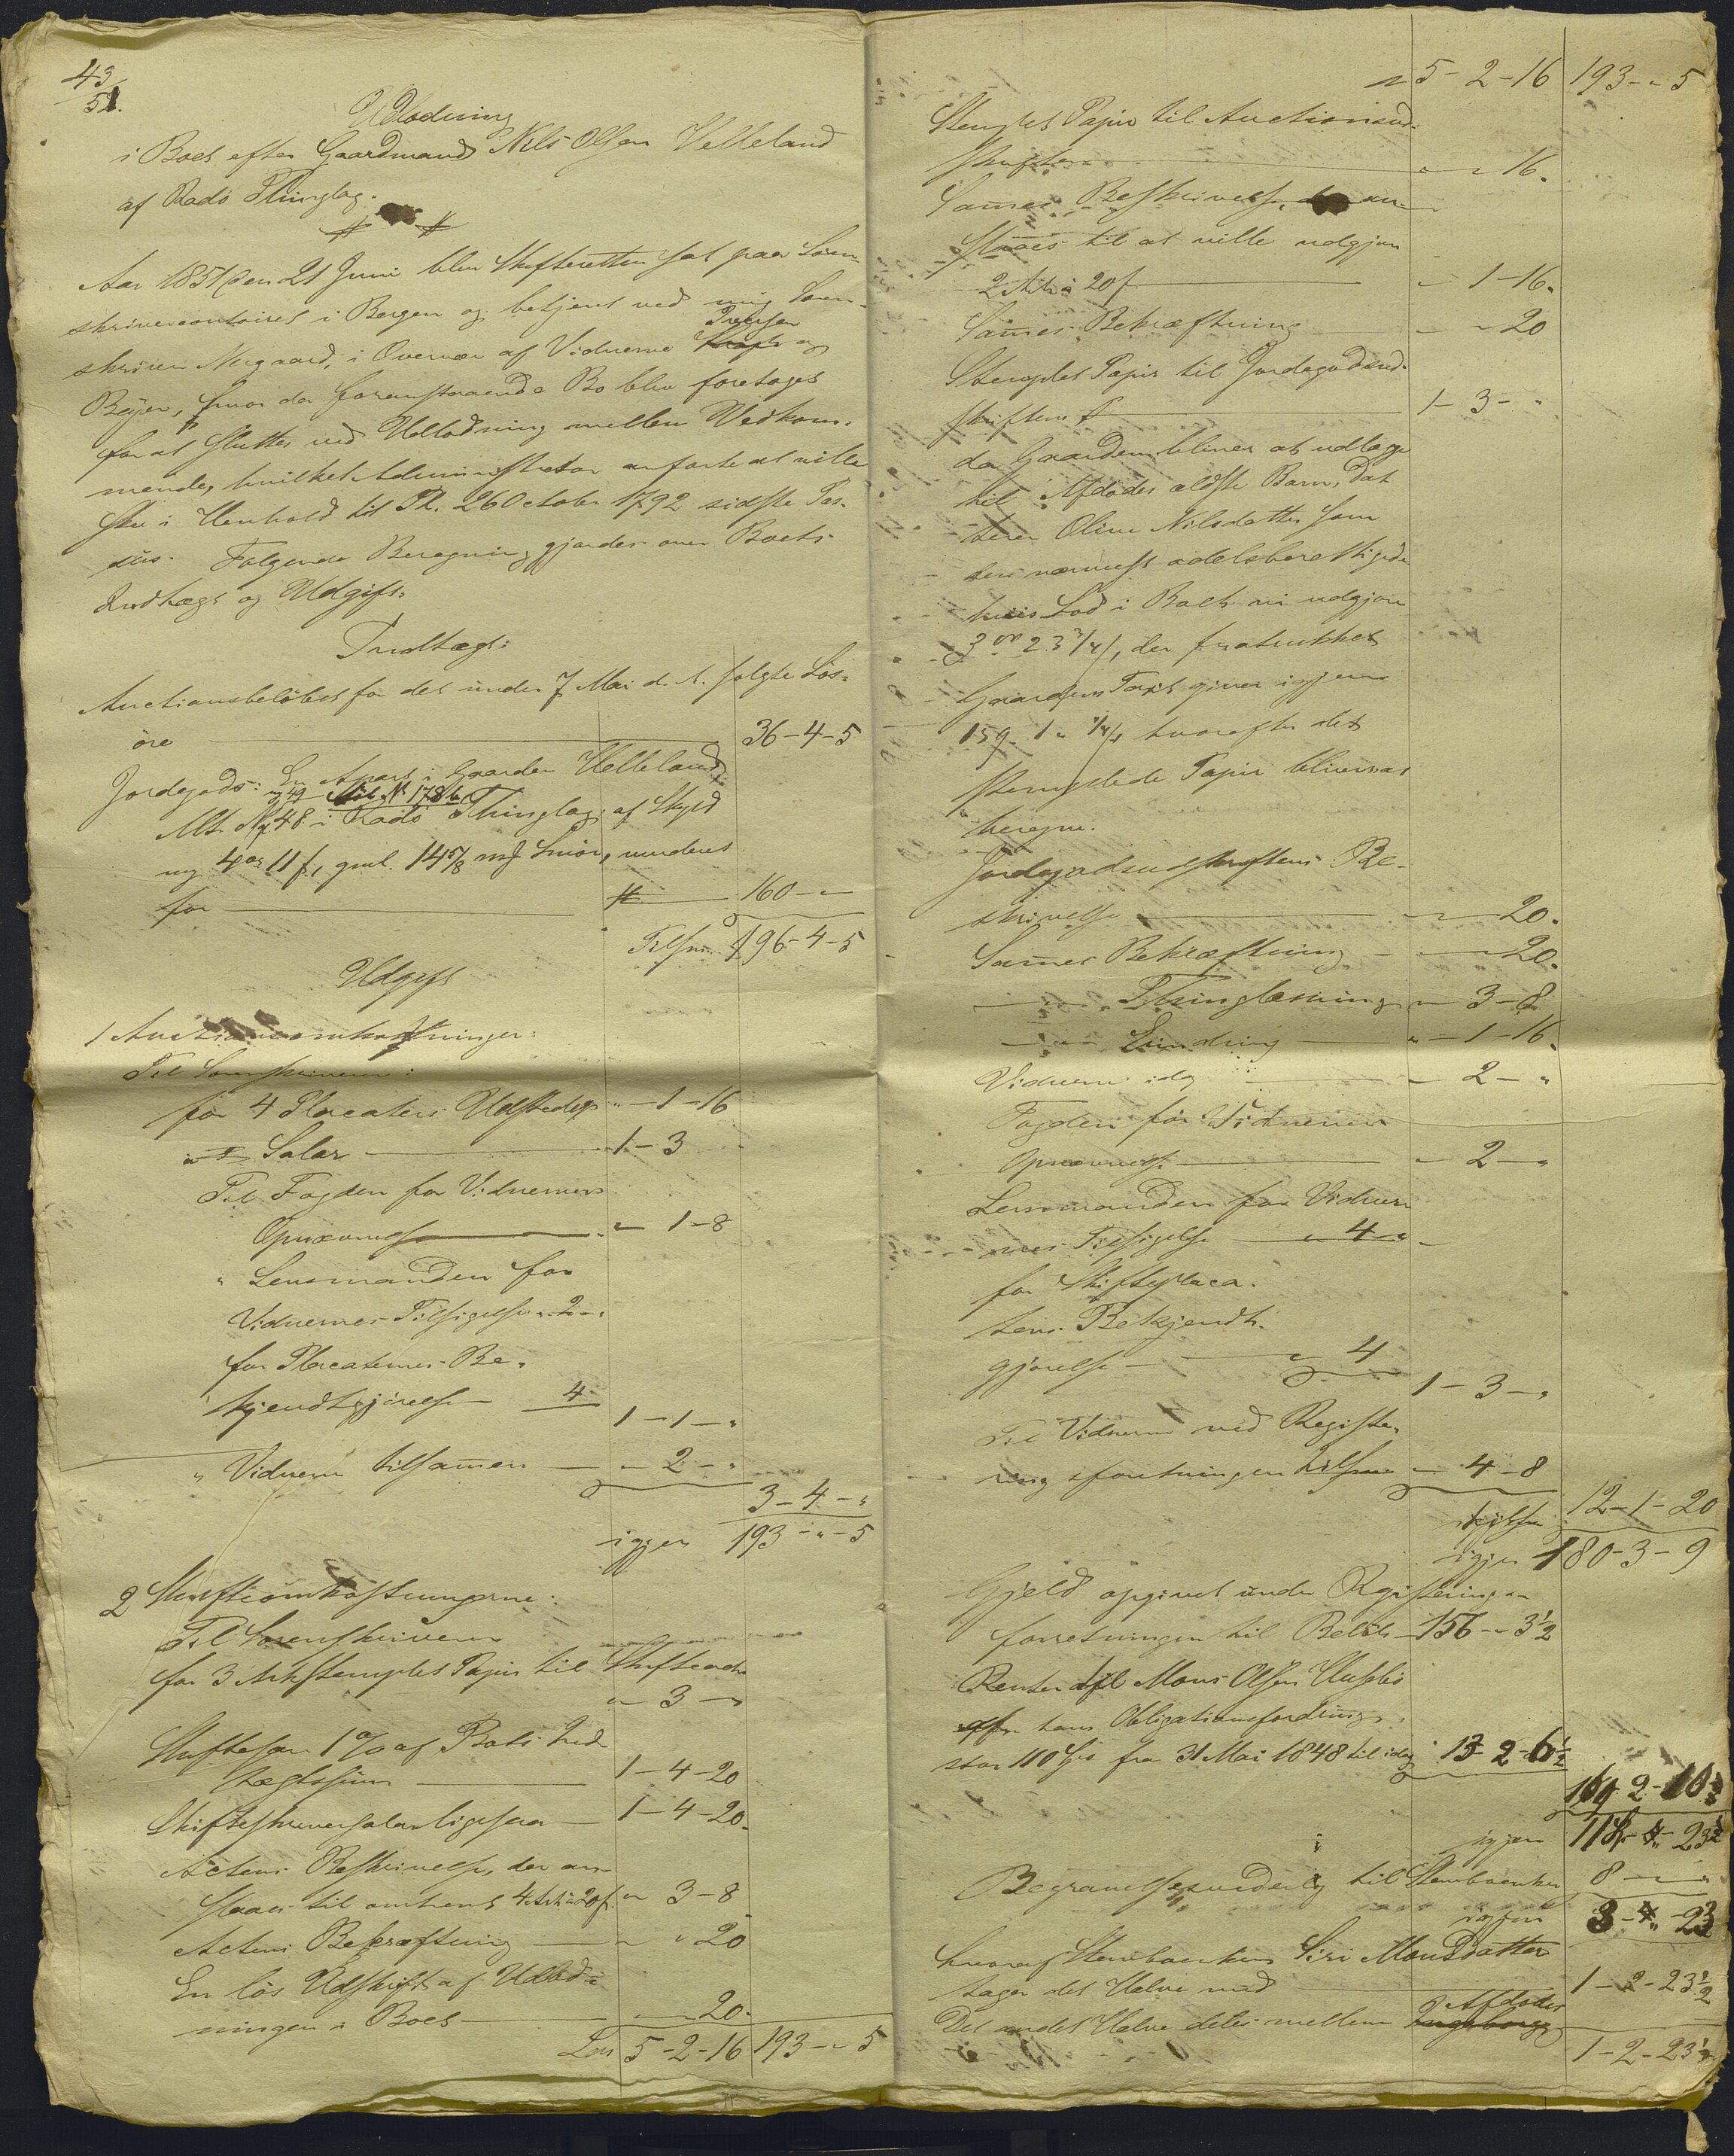 43/51.
Udlodning
i Boet efter Gaardmand Nils Olsen Helleland
af Radö Thinglag.
Aar 1851 den 21 Juni blev Skifteretten sat paa Soren-
skrivercontoiret i Bergen og betjent ved mig Soren-
skriver Nygaard, i Overvær af Vidnerne Iversen og
Böyer, hvor da foranstaaende Bo blev foretaget
for at sluttes ved Udlodning mellem Vedkom-
mende, hvilket Administrator anförte at ville
ske i Henhold til Pl. 26 October 1792 sidste Pas-
sus. Fölgende Beregning gjordes over Boets
Indtægt og Udgift:
Indtægt:
Auctionsbelöbet for det under 7 Mai d. A. solgte Lös-
öre 36-4-5
Jordegods: En Apart i Gaarden Helleland
og 49 Löb. No 178b
Mt. No 48 i Radö Thinglag af Skyld
ny 4 ort 11 s, gml. 14 5/8 mk Smör, vurderet
for 160 - "
Tilsm. 196-4-5
Udgift
1 Auctionsomkostninger:
Til Sorenskriveren:
for 4 Placaters Udstedelse " - 1 - 16
" Salar 1 - 3
Til Fogden for Vidnernes
Opnævnelse " 1 - 8
" Lensmanden for
Vidnernes Tilsigelse " 2 "
for Placaternes Be-
kjendtgjörelse 4
1 - 1 - "
" Vidnerne tilsammen " 2 - "
3 - 4 - "
igjen 193 - " - 5
2 Skifteomkostningerne:
Til Sorenskriveren
for 3 Ark stemplet Papir til Skifteacten
" 3 - "
Skiftesalær 1 % af Boets Ind-
tægtssum 1 - 4 - 20
Skifteskriversalar ligesaa 1 - 4 - 20.
Actens Beskrivelse, der an-
slaaes til omtrent 4 Ark à 20 s. " 3 - 8
Actens Bekræftning " " 20
En lös Udskrift af Udlod-
ningen i Boet " 20.
Lat. 5 - 2 - 16 193 - " 5
5 - 2 - 16 193 - " 5
Stemplet Papir til Auctionsud-
skriften " " 16.
Sammes Beskrivelse, an-
slaaes til at ville udgjöre
2 Ark à 20 s " 1 - 16.
Sammes Bekræftning " " 20
Stemplet Papir til Jordegodsud-
skriften 1 - 3 - "
da Gaarden bliver at udlægge
til Afdödes ældste Barn, Dat-
teren Oline Nilsdatter som
den nærmest odelsberettigede
hvis Lod i Boet vil udgjöre
3 ort 23 3/4 s, der fratrukket
Gaardens Taxt giver igjen
159. 1 " 1/4 s hvorefter det
stemplede Papir bliver at
beregne.
Jordegodsudskriftens Be-
skrivelse " " 20.
Sammes Bekræftning " " 20.
" Thinglæsning " 3 - 8
" Grunding " - 1 - 16.
Vidnerne idag " 2 - "
Fogden for Vidnernes
Opnævnelse " 2 - "
Lensmanden for Vidner-
nes Tilsigelse " 4 "
for Skifteplaca-
tens Bekjendt-
gjörelse " 4
1 - 3 - "
Til Vidnerne ved Registe-
ringsforretningen tilsm. " 4 - 8
12 - 1 - 20
igjen 180 - 3 - 9
Gjeld opgivet under Registerings-
forretningen til Belöb 156 - " 3 1/2
Renter til Mons Olsen Huseby
af hans Obligationsfordring
stor 110 Spd fra 31 Mai 1848 til idag 13 2 - 6 1/2
169 2 - 10
igjen 11 - " - 23
Begravelsesudlæg til Stervboenken 8 - " - "
igjen 3 - " - 23
hvoraf Stervboenken Siri Monsdatter
tager det Halve med 1 - 2 - 23 1/2
Det andet Halve deles mellem Afdödes
1 - 2 - 23 1/2